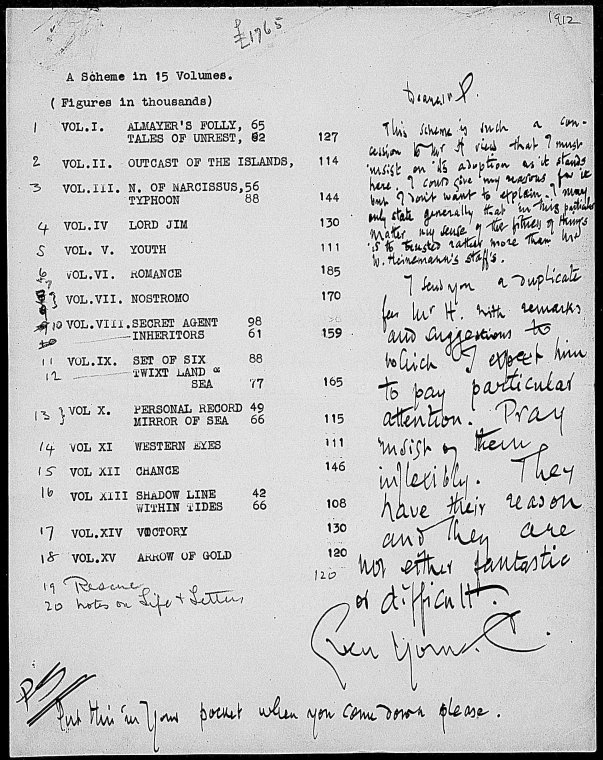 1912
£1765
A Scheme in 15 Volumes.
(Figures in thousands)
1 VOL.I. ALMAYER'S FOLLY, 65
TALES OF UNREST, 62 127
2 VOL.II. OUTCAST OF THE ISLANDS, 114
3 VOL.III. N. OF NARCISSUS, 56
TYPHOON 88 144
4 VOL.IV LORD JIM 130
5 VOL. V. YOUTH 111
6 VOL.VI. ROMANCE 185
VOL.VII. NOSTROMO 170
10 VOL.VIII. SECRET AGENT 98
INHERITORS 61 159
11 VOL.IX. SET OF SIX 88
12 TWIXT LAND &
SEA 77 165
13 } VOL X. PERSONAL RECORD 49
MIRROR OF SEA 66 115
14 VOL XI WESTERN EYES 111
15 VOL XII CHANCE 146
16 VOL XIII SHADOW LINE 42
WITHIN TIDES 66 108
17 VOL.XIV VICTORY 130
18 VOL.XV ARROW OF GOLD 120
120
19 Rescue
20 Notes on Life & Letters
Dearest P.
This scheme is such a con-
cession to Mr H view that I must
insist on its adoption as it stands
here. I could give my reasons for it
but I don't want to explain. I may
only state generally that in this particular
matter my sense of the fitness of things
is to trusted rather more than
W. Heinemann's staff's.
I send you a duplicate
for Mr H. with remarks
and suggestions to
which I expect him
to pay particular
attention. Pray
insist on them
inflexibly. They
have their reason
and they are
not either fantastic
or difficult.
Ever Yours. C.
PS
Put this in your pocket when you come down please.